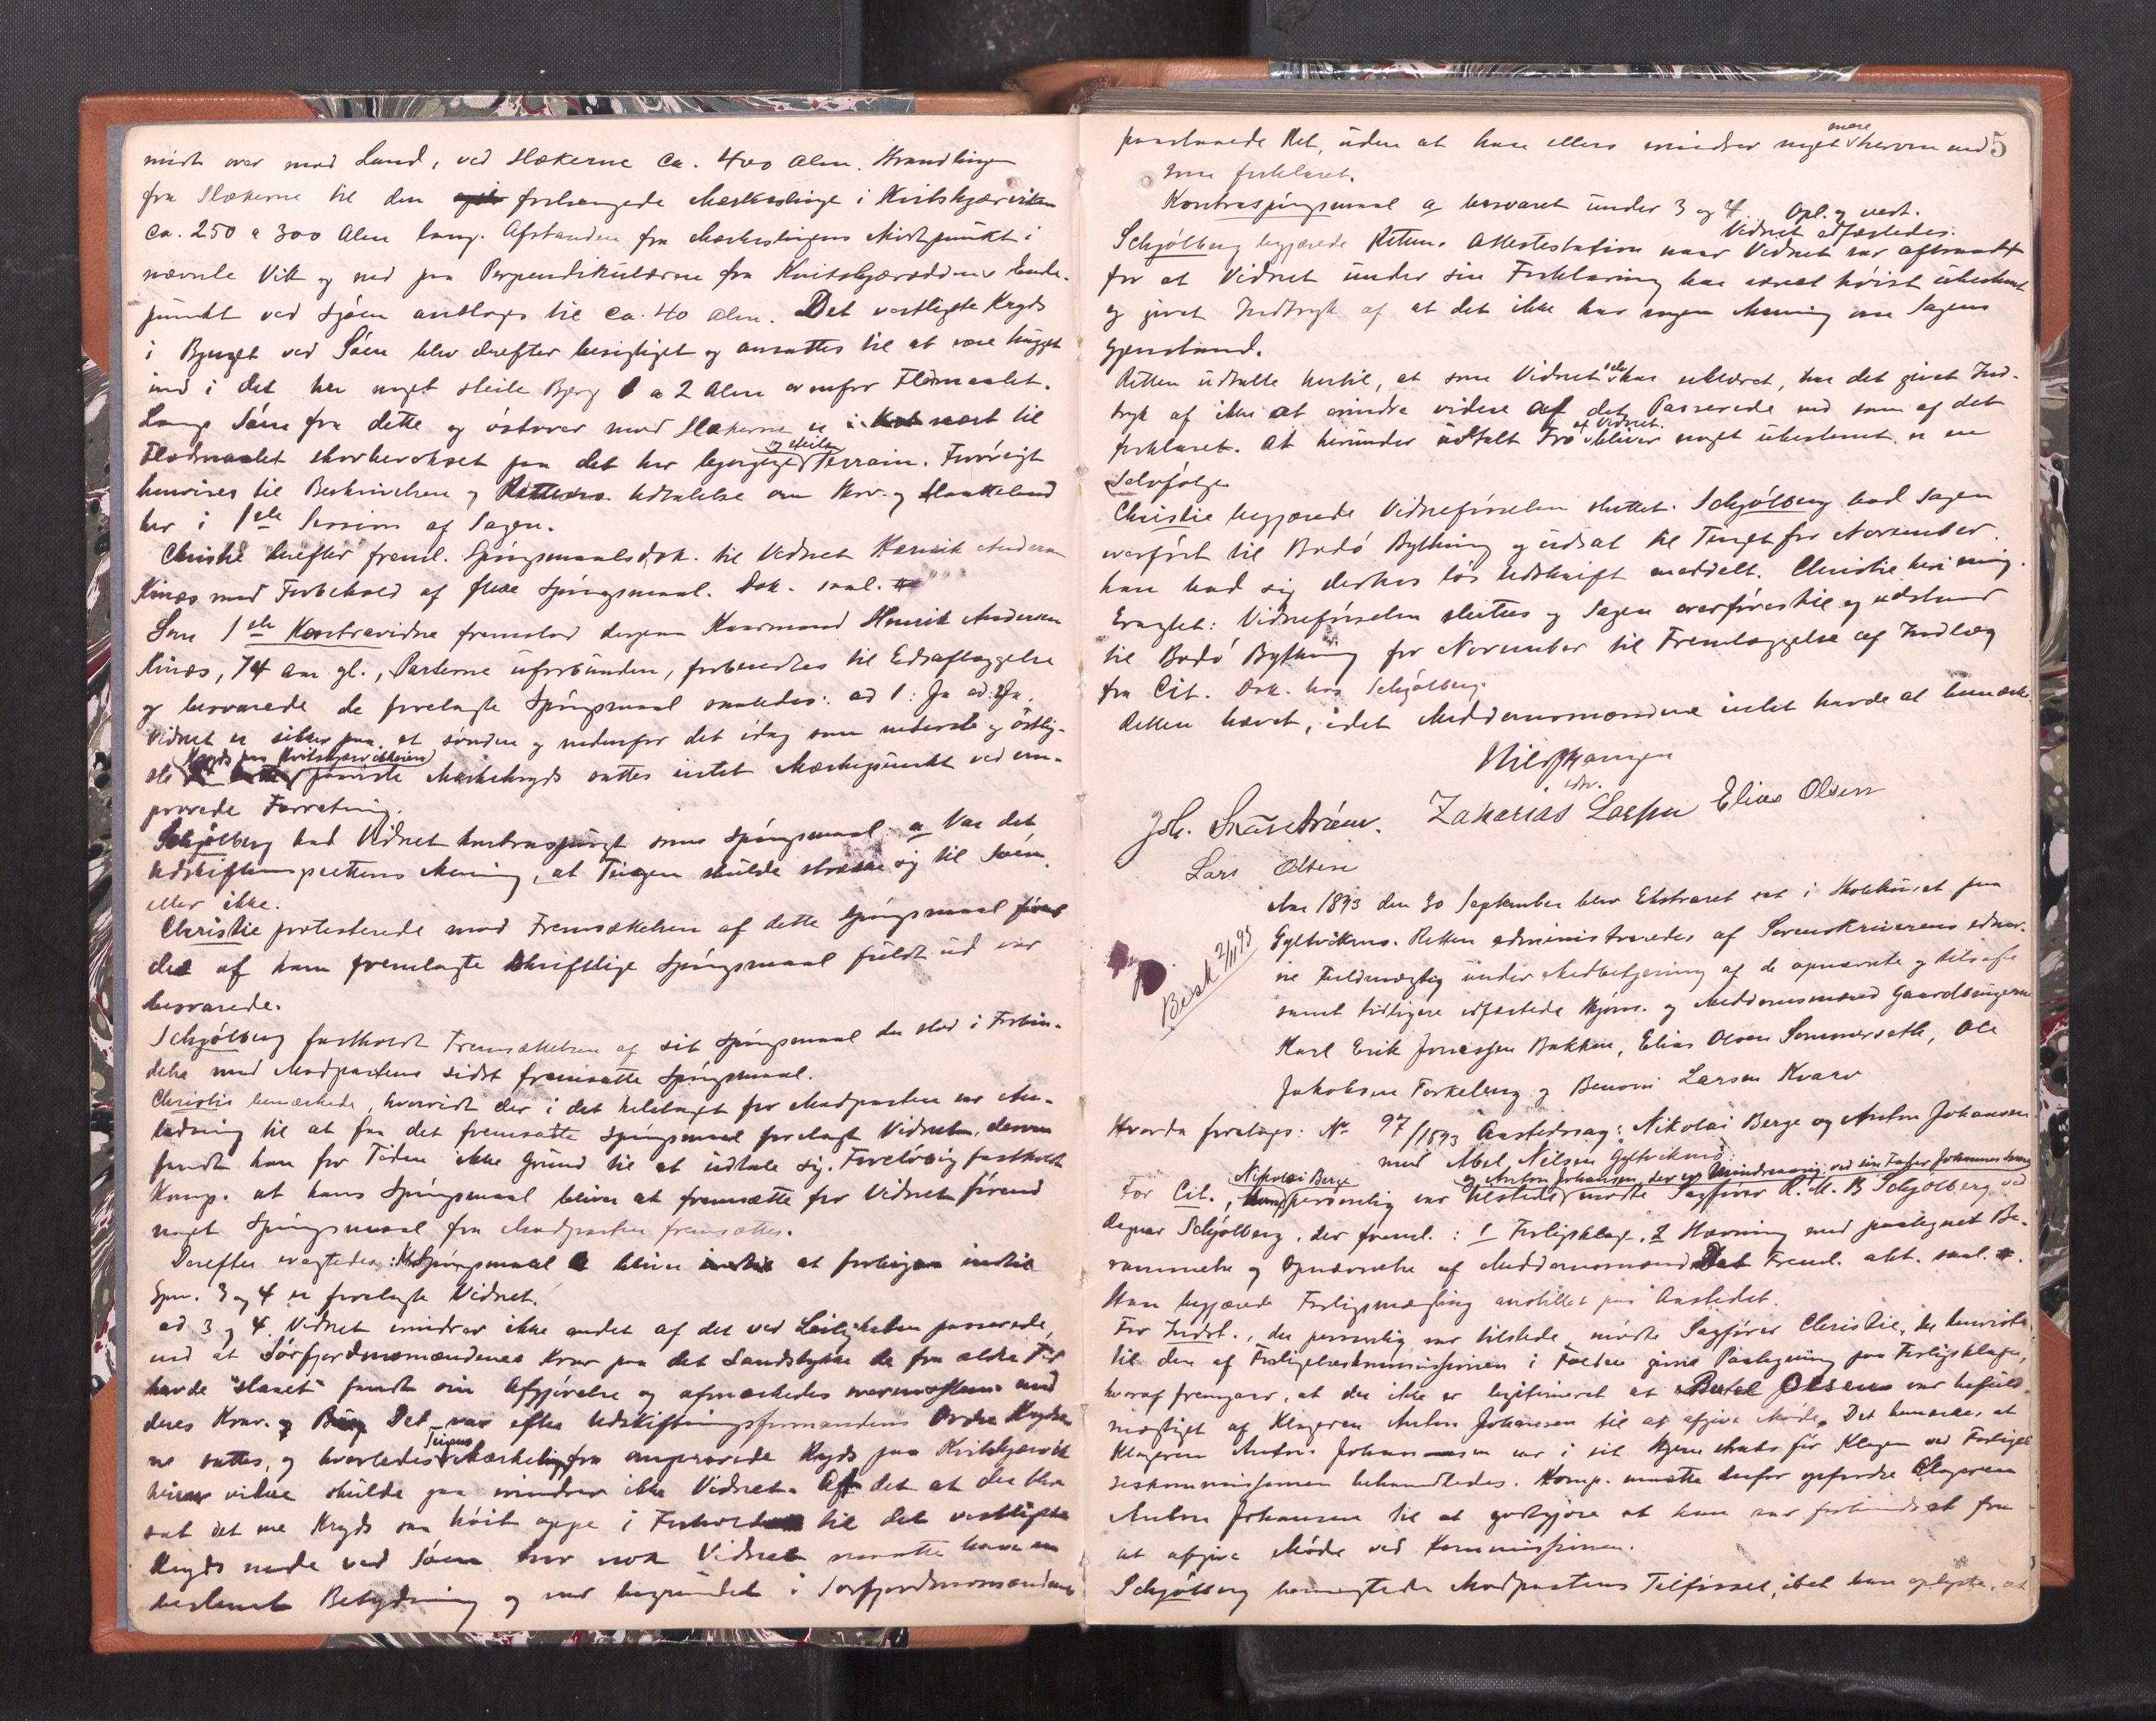 midt over mod Land, ved Slækerne ca. 400 Alen. Strandlinjen
fra Slækerne til den forlængede Mærkeslinje i Kvitskjærviken
ca. 250 a 300 Alen lang. Afstanden fra Mærkeslinjens Midtpunkt i
nævnte Vik og ned paa Perpendikulæren fra Kvitskjæroddens Ende-
punkt ved Sjøen antages til ca. 40 Alen. Det vestligste Kryds
i Bjerget ved Søen blev derefter besigtiget og ansattes til at være hugget
ind i det her noget steile Bjerg 1 a 2 Alen ovenfor Flodmaalet.
Langs Søen fra dette og østover mod Slækerne er nært til
Flodmaalet skovbevokset paa det her bjergige og steile Terrain. Forøvrigt
henvises til Beskrivelsen og Rettens Udtalelse om Skov- og Slaatteland
her i 1ste Session af Sagen.
Christie derefter freml. Spørgsmaalsdok. til Vidnet Henrik Andersen
Kinæs med Forbehold af flere Spørgsmaal. Dok. saal.
Som 1ste Kontravidne fremstod derpaa Kaarmand Henrik Andersen
Kinæs, 74 Aar gl., Parterne uforbunden, forberedtes til Edsaflæggelse
og besvarede de forelagte Spørgsmaal saaledes: ad 1: Ja ad 2: Ja.
Vidnet er sikker paa, at søndre og nedenfor det idag som nederste og østlig-
ste Kryds paa Kvitskjærvikleiren paaviste Mærkekryds sattes intet Mærkepunkt ved om-
provede Forretning.
Schjølberg bad Vidnet kontraspurgt som Spørgsmaal a Var det
Udskiftningsrettens Mening, at Teigen skulde strække sig til Søen,
eller ikke.
Christie protesterede mod Fremsættelsen af dette Spørgsmaal førend
de af ham fremlagte skriftlige Spørgsmaal fuldt ud var
besvarede.
Schjølberg fastholdt Fremsættelsen af sit Spørgsmaal der stod i Forbin-
delse med Modpartens sidst fremsatte Spørgsmaal.
Christie bemærkede, hvorvidt der i det heletaget for Modparten var An-
ledning til at faa det fremsatte Spørgsmaal forelagt Vidnet, derom
fandt han for Tiden ikke Grund til at udtale sig. Foreløbig fastholdt
Komp. at hans Spørgsmaal bliver at fremsætte for Vidnet førend
noget Spørgsmaal fra Modparten fremsættes.
Derefter eragtedes: Spørgsmaal a bliver at forbigaa indtil
Spm. 3 og 4 er forelagte Vidnet.
ad 3 og 4. Vidnet mindres ikke andet af det ved Leiligheden passerede,
end at Sørfjordmomændenes Krav paa det Landstykke de fra ældre Tid
havde "slaaet" fandt sin Afgjørelse og afmærkedes overensstem. med
deres Krav. Det var efter Udskiftningsformandens Ordre Kryds-
ne sattes, og hvorledes Teigens Mærkelinje fra omprovede Kryds paa Kvitskjærvik
videre skulde gaa mindres ikke Vidnet. Af det at der blev
sat det ene Kryds saa høit oppe i Forhold til det vestligste
Kryds nede ved Søen tror nok Vidnet maatte have en
bestemt Betydning og var begrundet i Sørfjordmomændenes
5
paastaaede Ret, uden at han ellers mindres noget mere herom end
som forklaret.
Kontraspørgsmaal a besvaret under 3 og 4. Opl. og vedt.
Vidnet edfæstedes.
Schjølberg begjærede Rettens Attestation naar Vidnet var aftraadt
for at Vidnet under sin Forklaring har været høist ubestemt
og givet Indtryk af at det ikke har nogen Mening om Sagens
Gjenstand.
Retten udtalte hertil, at som Vidnet selv har erklæret, har det givet Ind-
tryk af ikke at mindes videre af det Passerede end som af det
forklaret. At herunder udtalt Tro af Vidnet bliver noget ubestemt er en
Selvfølge.
Christie begjærede Vidneførselen sluttet. Schjølberg bad Sagen
overført til Bodø Bything og udsat til Tinget for November.
Han bad sig derhos løs Udskrift meddelt. Christie henv.
Eragtet: Vidneførselen sluttes og Sagen overføres til og udstaar
til Bodø Bything for November til Fremlæggelse af Indlæg
fra Cit. Dok. hos Schjølberg.
Retten hævet, idet Meddomsmændene intet havde at bemærke.
Joh. Zakarias Larsen Elias Olsen
Lars Olsen
Aar 1893 den 30 September blev Ekstraret sat i Skolehuset paa
Gyltvikens. Retten administreredes af Sorenskriverens edsvor-
ne Fuldmægtig under Medbetjening af de opnævnte og tilsagte
samt tidligere edfæstede Skjøns- og Meddomsmænd Gaardbrugerne
Besk 2/11 93
Karl Erik Jonassen Bakken, Elias Olsen Sommersæth, Ole
Jakobsen Torkeleng og Benoni Larsen Kvarv
Hvorda foretoges: No 97/1893 Aastedssag: Nikolai Berge og Anton Johansen
mod Abel Nilsen Gyltviknes.
For Cit., Nikolai Berge personlig var tilstede og Anton Johansen, der er Mindreaarig, ved sin Fader Johannes mødte Sagfører R. M. B. Schjølberg ved
Ragnar Schjølberg, der freml.: 1 Forligsklage, 2 Stævning med paategnet Be-
rammelse og Opnævnelse af Meddomsmænd. Det Freml. akt. saal.
Han begjærede Forligsmægling anstillet paa Aastedet.
For Indst., der personlig var tilstede, mødte Sagfører Christie, der henviste
til den af Forligelseskommissionen i Folden givne Paategning paa Forligsklagen,
hvoraf fremgaar, at der ikke er legitimeret at Bertel Olsen var befuld-
mægtiget af Klageren Anton Johansen til at afgive Møde. Det bemærkes, at
Klageren Anton Johansen var i sit Hjem straks før Klagen ved Forligel-
seskommissionen behandledes. Komp. maatte derfor opfordre Klageren
Anton Johansen til at godtgjøre at han var forhindret fra
at afgive Møde ved Kommissionen.
Schjølberg benægtede Modpartens Tilførsel, idet han oplyste, at